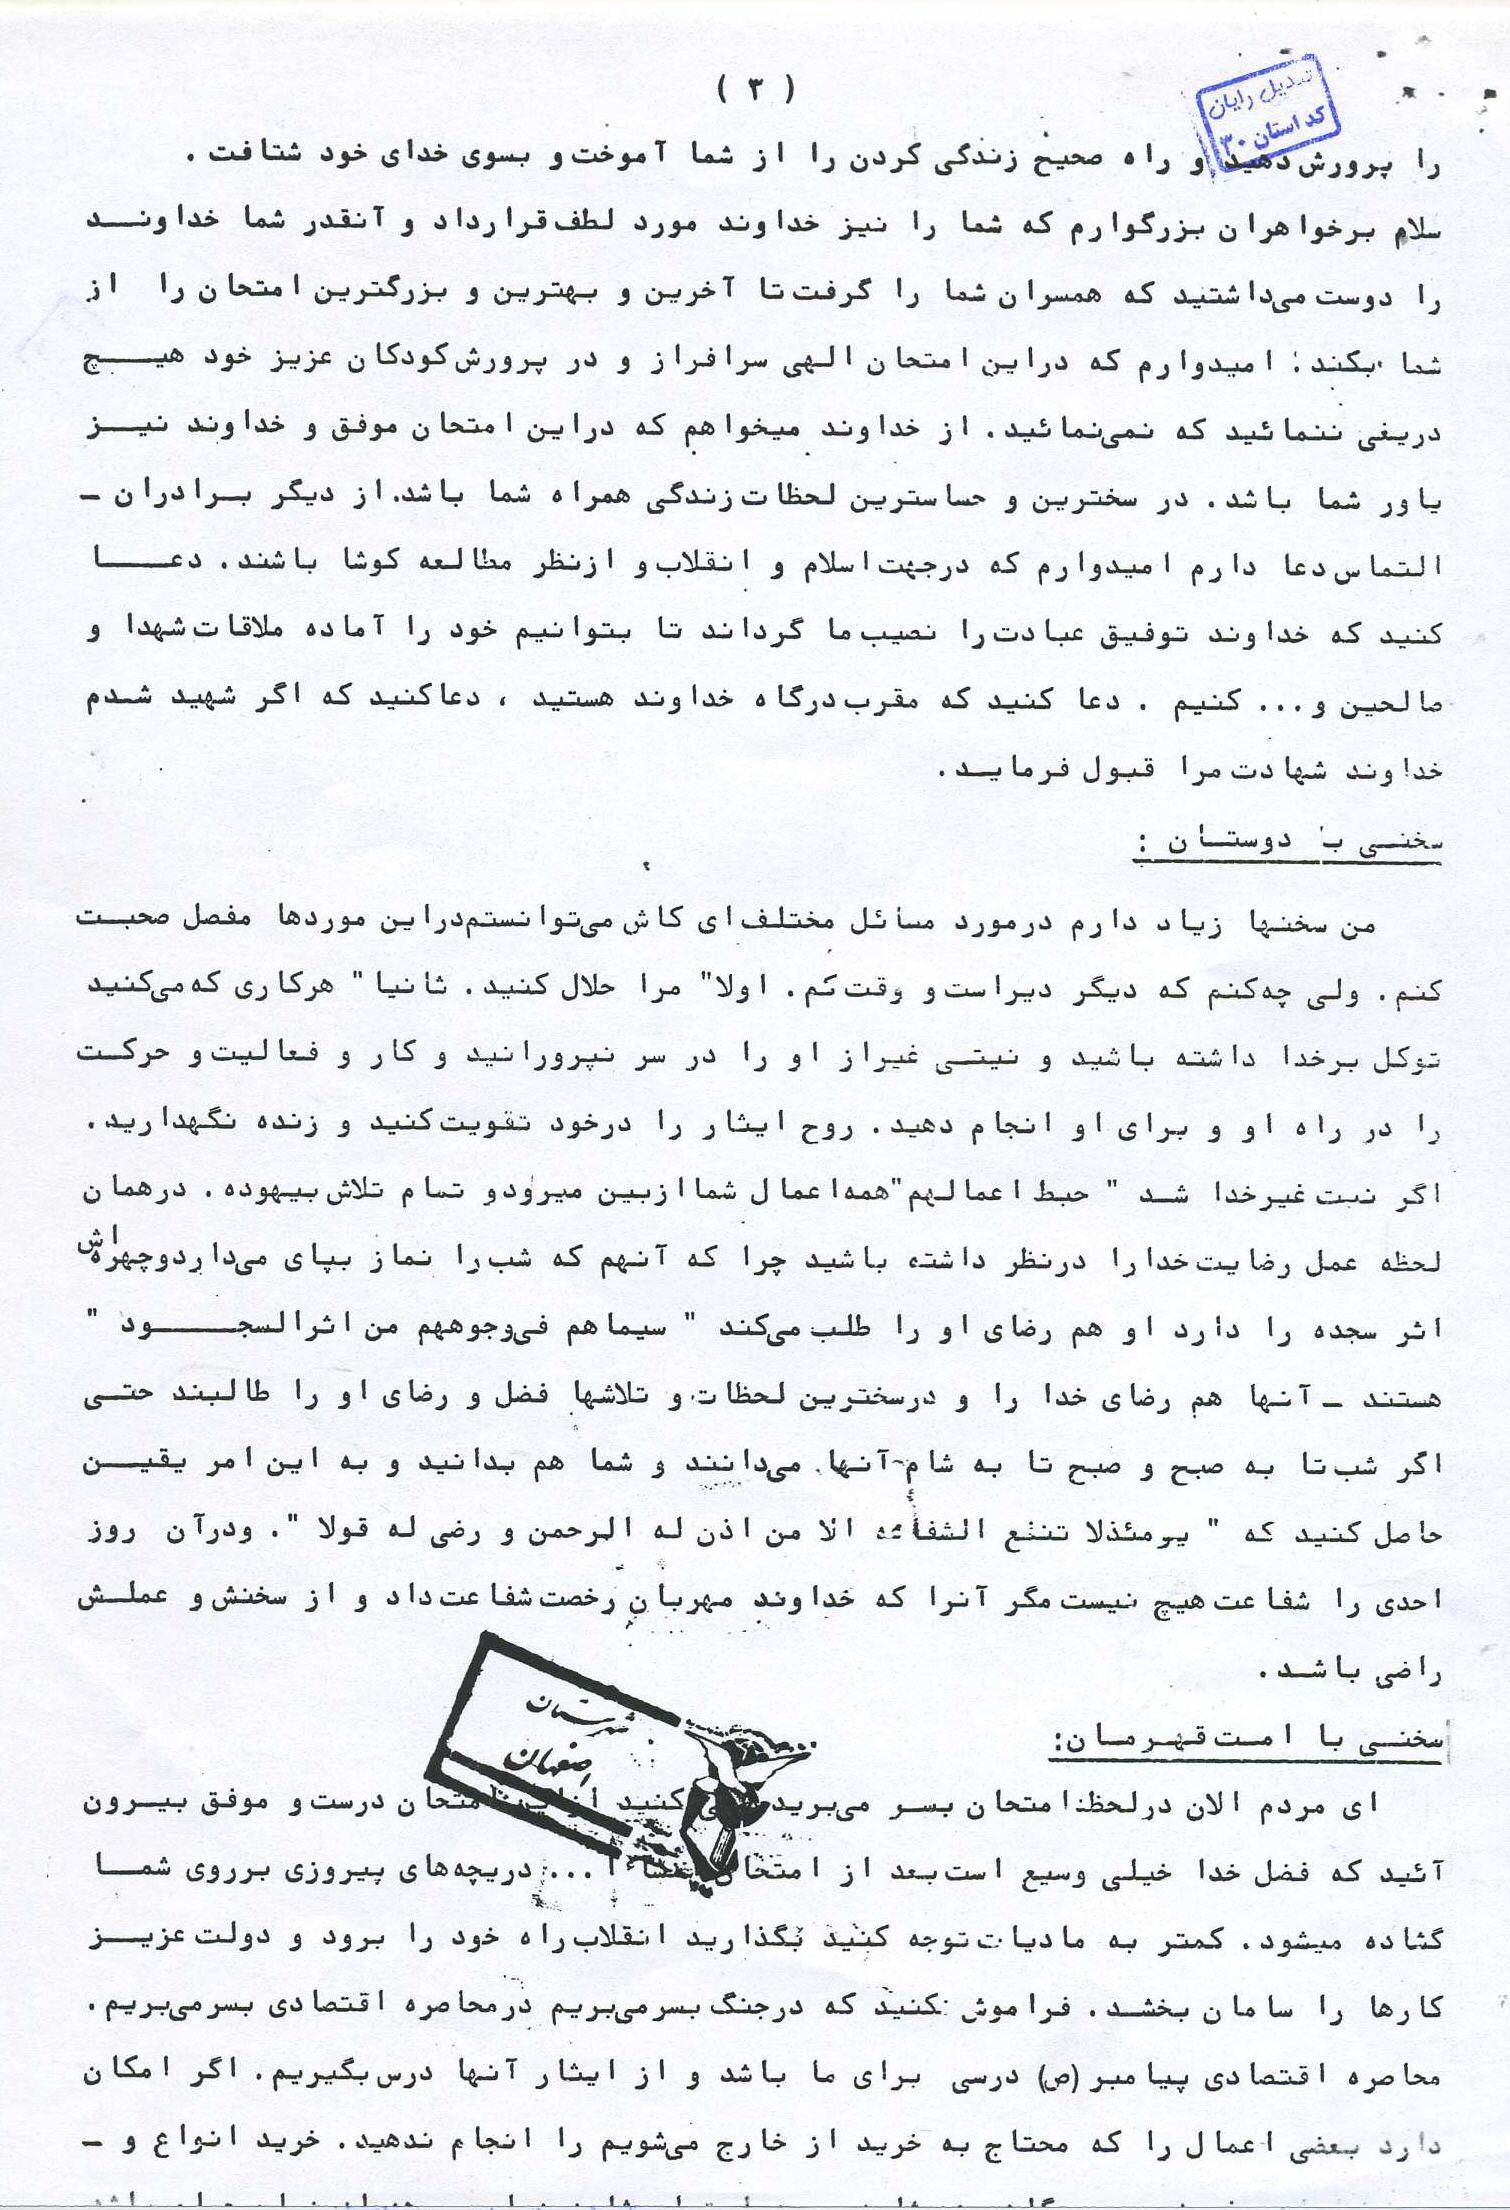 ( ۳ )
تبدیل رایان
کد استان ۳۰
را پرورش دهید و راه صحیح زندگی کردن را از شما آموخت و بسوی خدای خود شتافت .
سلام برخواهران بزرگوارم که شما را نیز خداوند مورد لطف قرارداد و آنقدر شما خداونـد
را دوست می‌داشتید که همسران شما را گرفت تا آخرین و بهترین و بزرگترین امتحان را از
شما بکند؛ امیدوارم که دراین امتحان الهی سرافراز و در پرورش کودکان عزیز خود هیـچ
دریغی ننمائید که نمی‌نمائید. از خداوند میخواهم که دراین امتحان موفق و خداوند نیـز
یاور شما باشد. در سخترین و حساسترین لحظات زندگی همراه شما باشد. از دیگر بـرادران ـ
التماس دعا دارم امیدوارم که درجهت اسلام و انقلاب و ازنظر مطالعه کوشا باشند. دعـا
کنید که خداوند توفیق عبادت را نصیب ما گرداند تا بتوانیم خود را آماده ملاقات شهدا و
صالحین و... کنیم . دعا کنید که مقرب درگاه خداوند هستید ، دعاکنید که اگر شهید شـدم
خداوند شهادت مرا قبول فرمایـد.
سخنـی با دوستـان :
من سخنها زیاد دارم درمورد مسائل مختلف ای کاش می‌توانستم دراین موردها مفصل صحبـت
کنم. ولی چه‌کنم که دیگر دیراست و وقت کم. اولا" مرا حلال کنید. ثانیا" هرکاری که می‌کنید
توکل برخدا داشته باشید و نیتـی غیراز او را در سر نپرورانید و کار و فعالیت و حرکـت
را در راه او و برای او انجام دهید. روح ایثار را درخود تقویت کنید و زنده نگهدارید.
اگر نیت غیرخدا شـد " حبط اعمالهم" همه اعمال شما ازبین میرود و تمام تلاش بیهوده. درهمان
لحظه عمل رضایت خدارا درنظر داشته باشید چرا که آنهم که شب را نماز بپای می‌دارد و چهره‌اش
اثر سجده را دارد او هم رضای او را طلب می‌کند " سیماهم فی‌وجوههم من اثرالسجـــود "
هستند ـ آنها هم رضای خدا را و درسخترین لحظات و تلاشها فضل و رضای او را طالبند حتـی
اگر شب تا به صبح و صبح تا به شام آنها می‌دانند و شما هم بدانید و به این امر یقیـن
حاصل کنید که " یومئذلا تنفع الشفاعه الا من اذن له الرحمن و رضی له قولا ". ودرآن روز
احدی را شفاعت هیچ نیست مگر آنرا که خداوند مهربان رخصت شفاعت داد و از سخنش و عملـش
راضی باشـد.
شهرستان
اصفهان
سخنـی با امـت قهـرمـان:
ای مردم الان درلحظه امتحان بسر می‌برید سعی کنید از این امتحان درست و موفق بیـرون
آئید که فضل خدا خیلی وسیع است بعد از امتحان انشاء ا ... دریچه‌های پیروزی برروی شمـا
گشاده میشود. کمتر به مادیات توجه کنید بگذارید انقلاب راه خود را برود و دولت عزیـز
کارها را سامان بخشـد. فراموش نکنید که درجنگ بسرمی‌بریم درمحاصره اقتصادی بسرمی‌بریم.
محاصره اقتصادی پیامبر (ص) درسی برای ما باشد و از ایثار آنها درس بگیریم. اگر امکان
دارد بعضی اعمال را که محتاج به خرید از خارج می‌شویم را انجام ندهید. خرید انواع و ـ